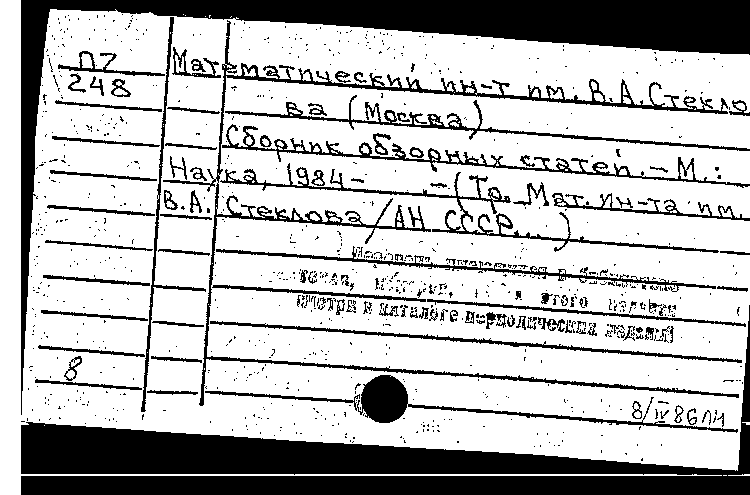 П7
248
Математический ин-т им. В.А.Стекло
ва (Москва).
Сборник обзорных статей. – М.:
Наука, 1984– . –(Тр. Мат. ин-та им.
В.А. Стеклова/АН СССР...).
в библиотеке
этого издания
смотри в каталоге периодических изданий
8
8/IV 86